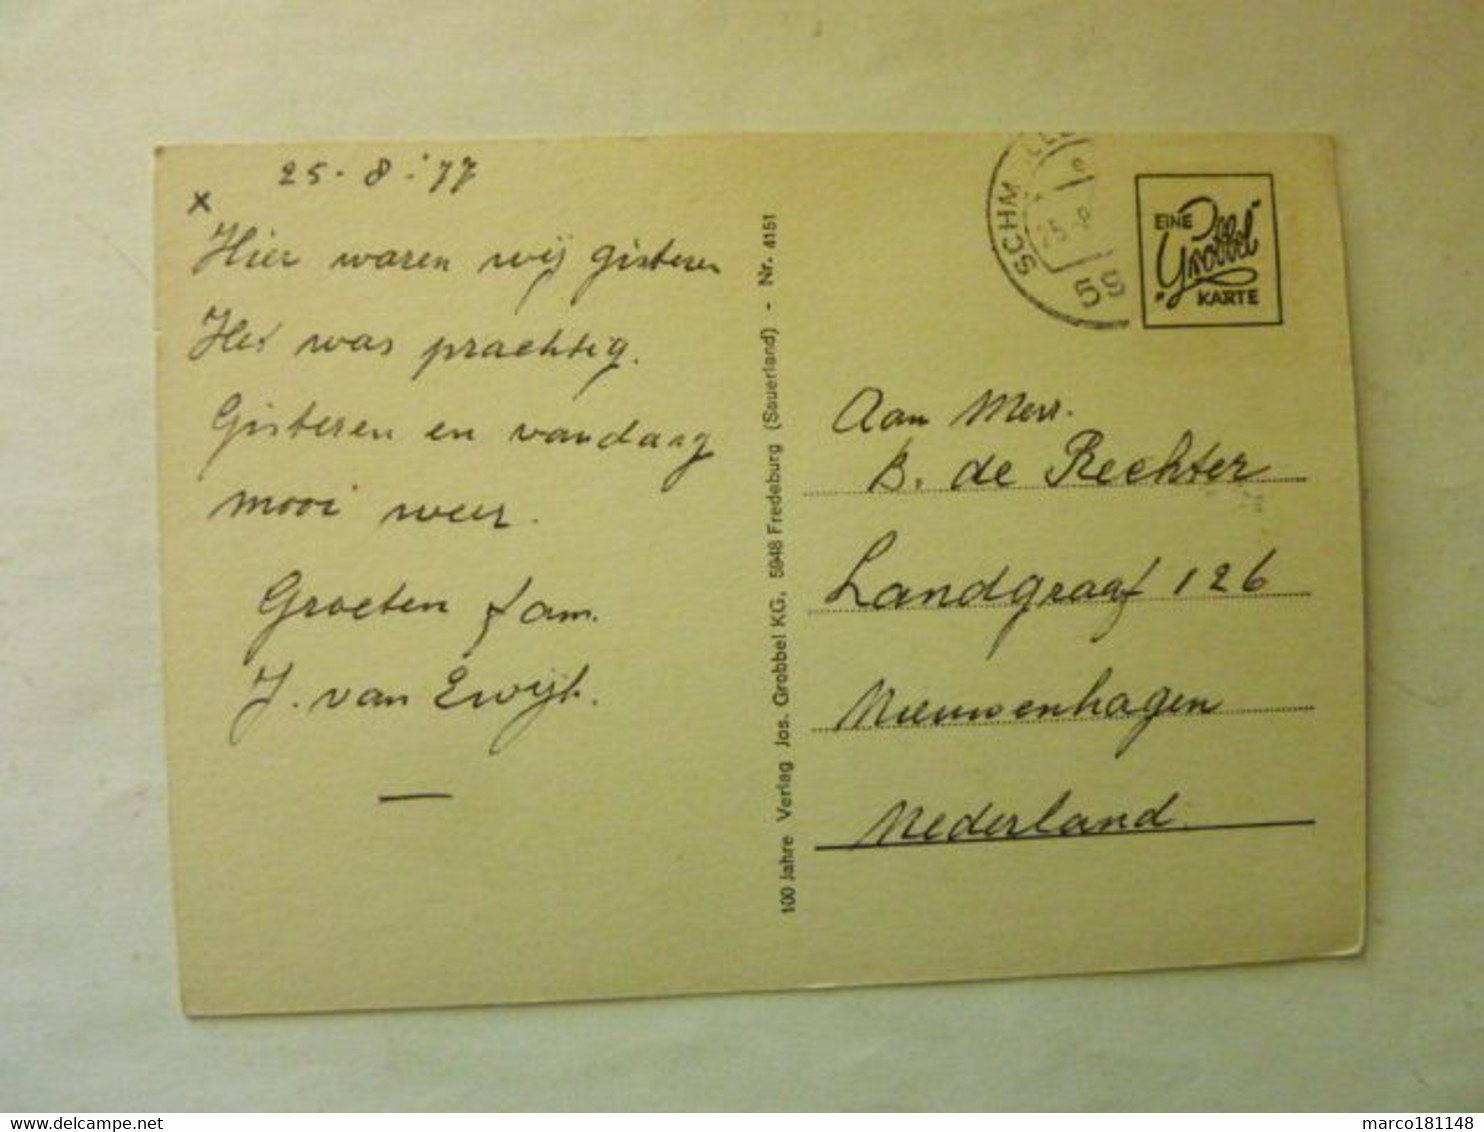 25-8-'77
x
Hier waren wij gisteren
Het was prachtig.
Gisteren en vandaag
mooi weer.
Groeten fam.
J. van Ewijk.
100 Jahre Verlag Jos. Grobbel KG, 5948 Fredeburg (Sauerland) - Nr. 4151
SCHM
25.-8
55
EINE
"Grobbel"
KARTE
Aan Merr.
B. de Rechter
Landgraaf 126
Nieuwenhagen
Nederland.
delcampe.net
marco181148